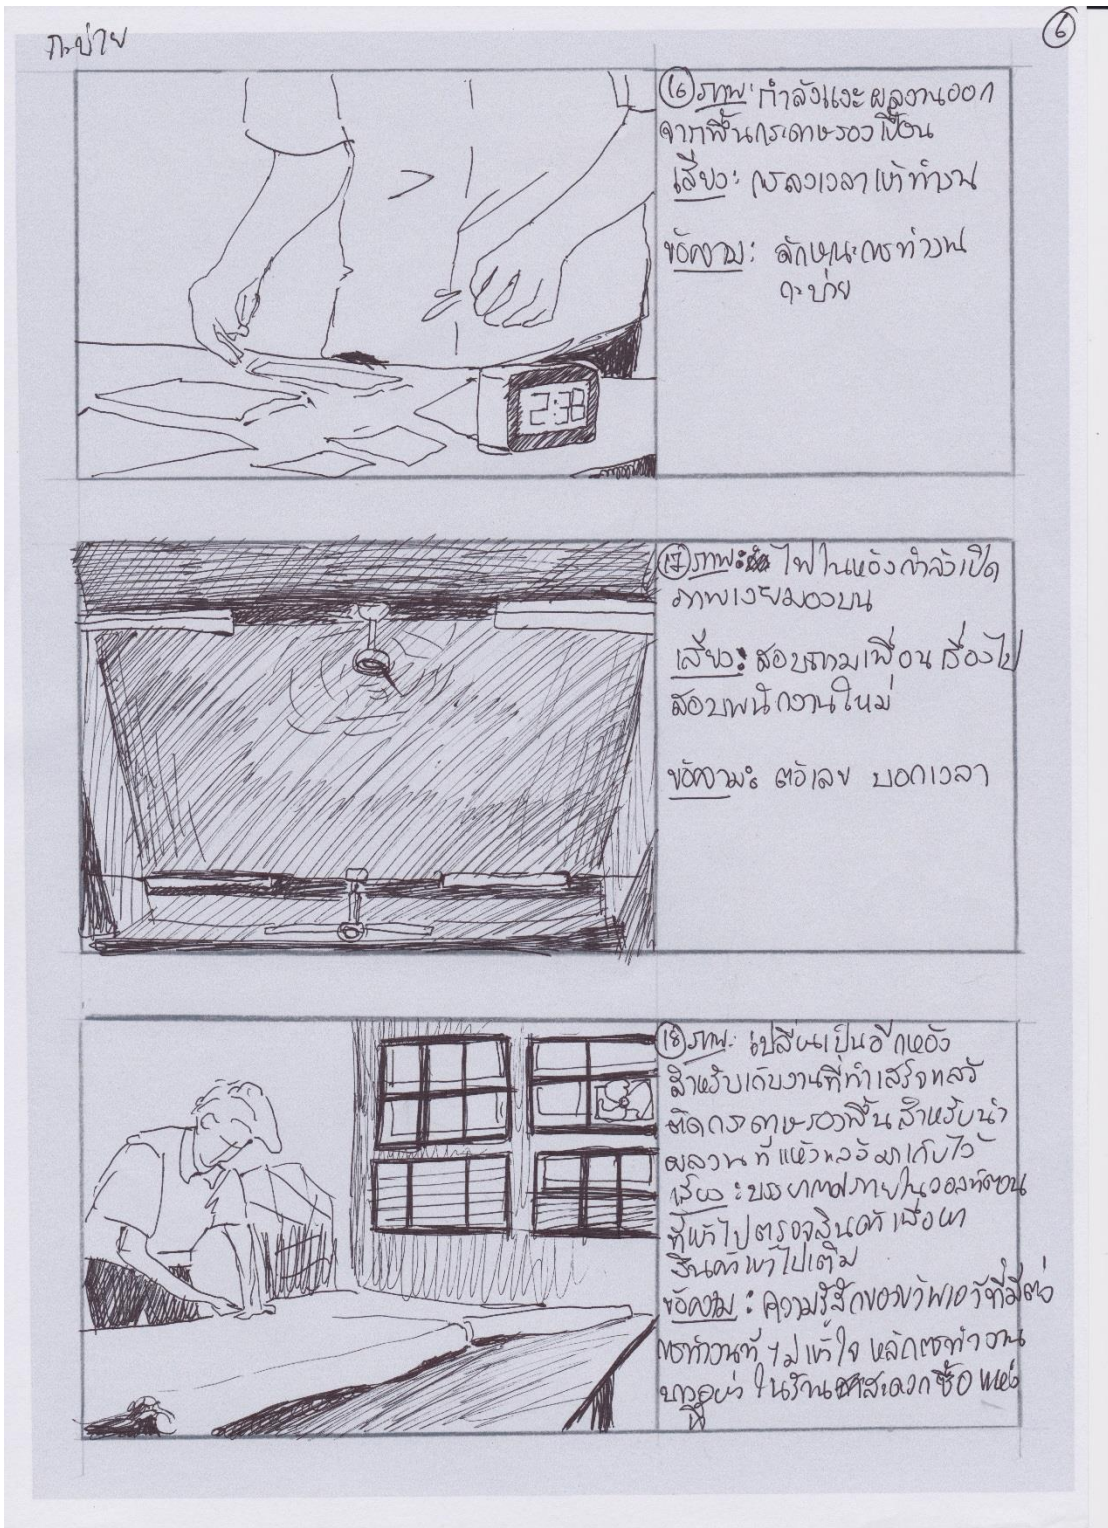 กะบ่าย
6
16 ภาพ: กำลังแงะผลงานออก
จากพื้นกระดาษรองเปื้อน
เสียง: การลงเวลาเข้าทำงาน
ข้อความ: ลักษณะการทำงาน
กะบ่าย
2:38
17 ภาพ: ไฟในห้องกำลังเปิด
ภาพเงยมองบน
เสียง: สอบถามเพื่อนเรื่องไป
สอบพนักงานใหม่
ข้อความ: ตัวเลข บอกเวลา
18 ภาพ: เปลี่ยนเป็นอีกห้อง
สำหรับเก็บงานที่ทำเสร็จแล้ว
ติดกระดาษรองพื้นสำหรับนำ
ผลงานที่แห้งแล้วมาเก็บไว้
เสียง: บรรยากาศภายในวอลท์ตอน
ที่เข้าไปตรวจสินค้าเพื่อหา
สินค้าเข้าไปเติม
ข้อความ: ความรู้สึกของข้าพเจ้าที่มีต่อ
การทำงานที่ไม่เข้าใจ หลักการทำงาน
บางอย่าง ในร้านสะดวกซื้อแห่ง
นี้